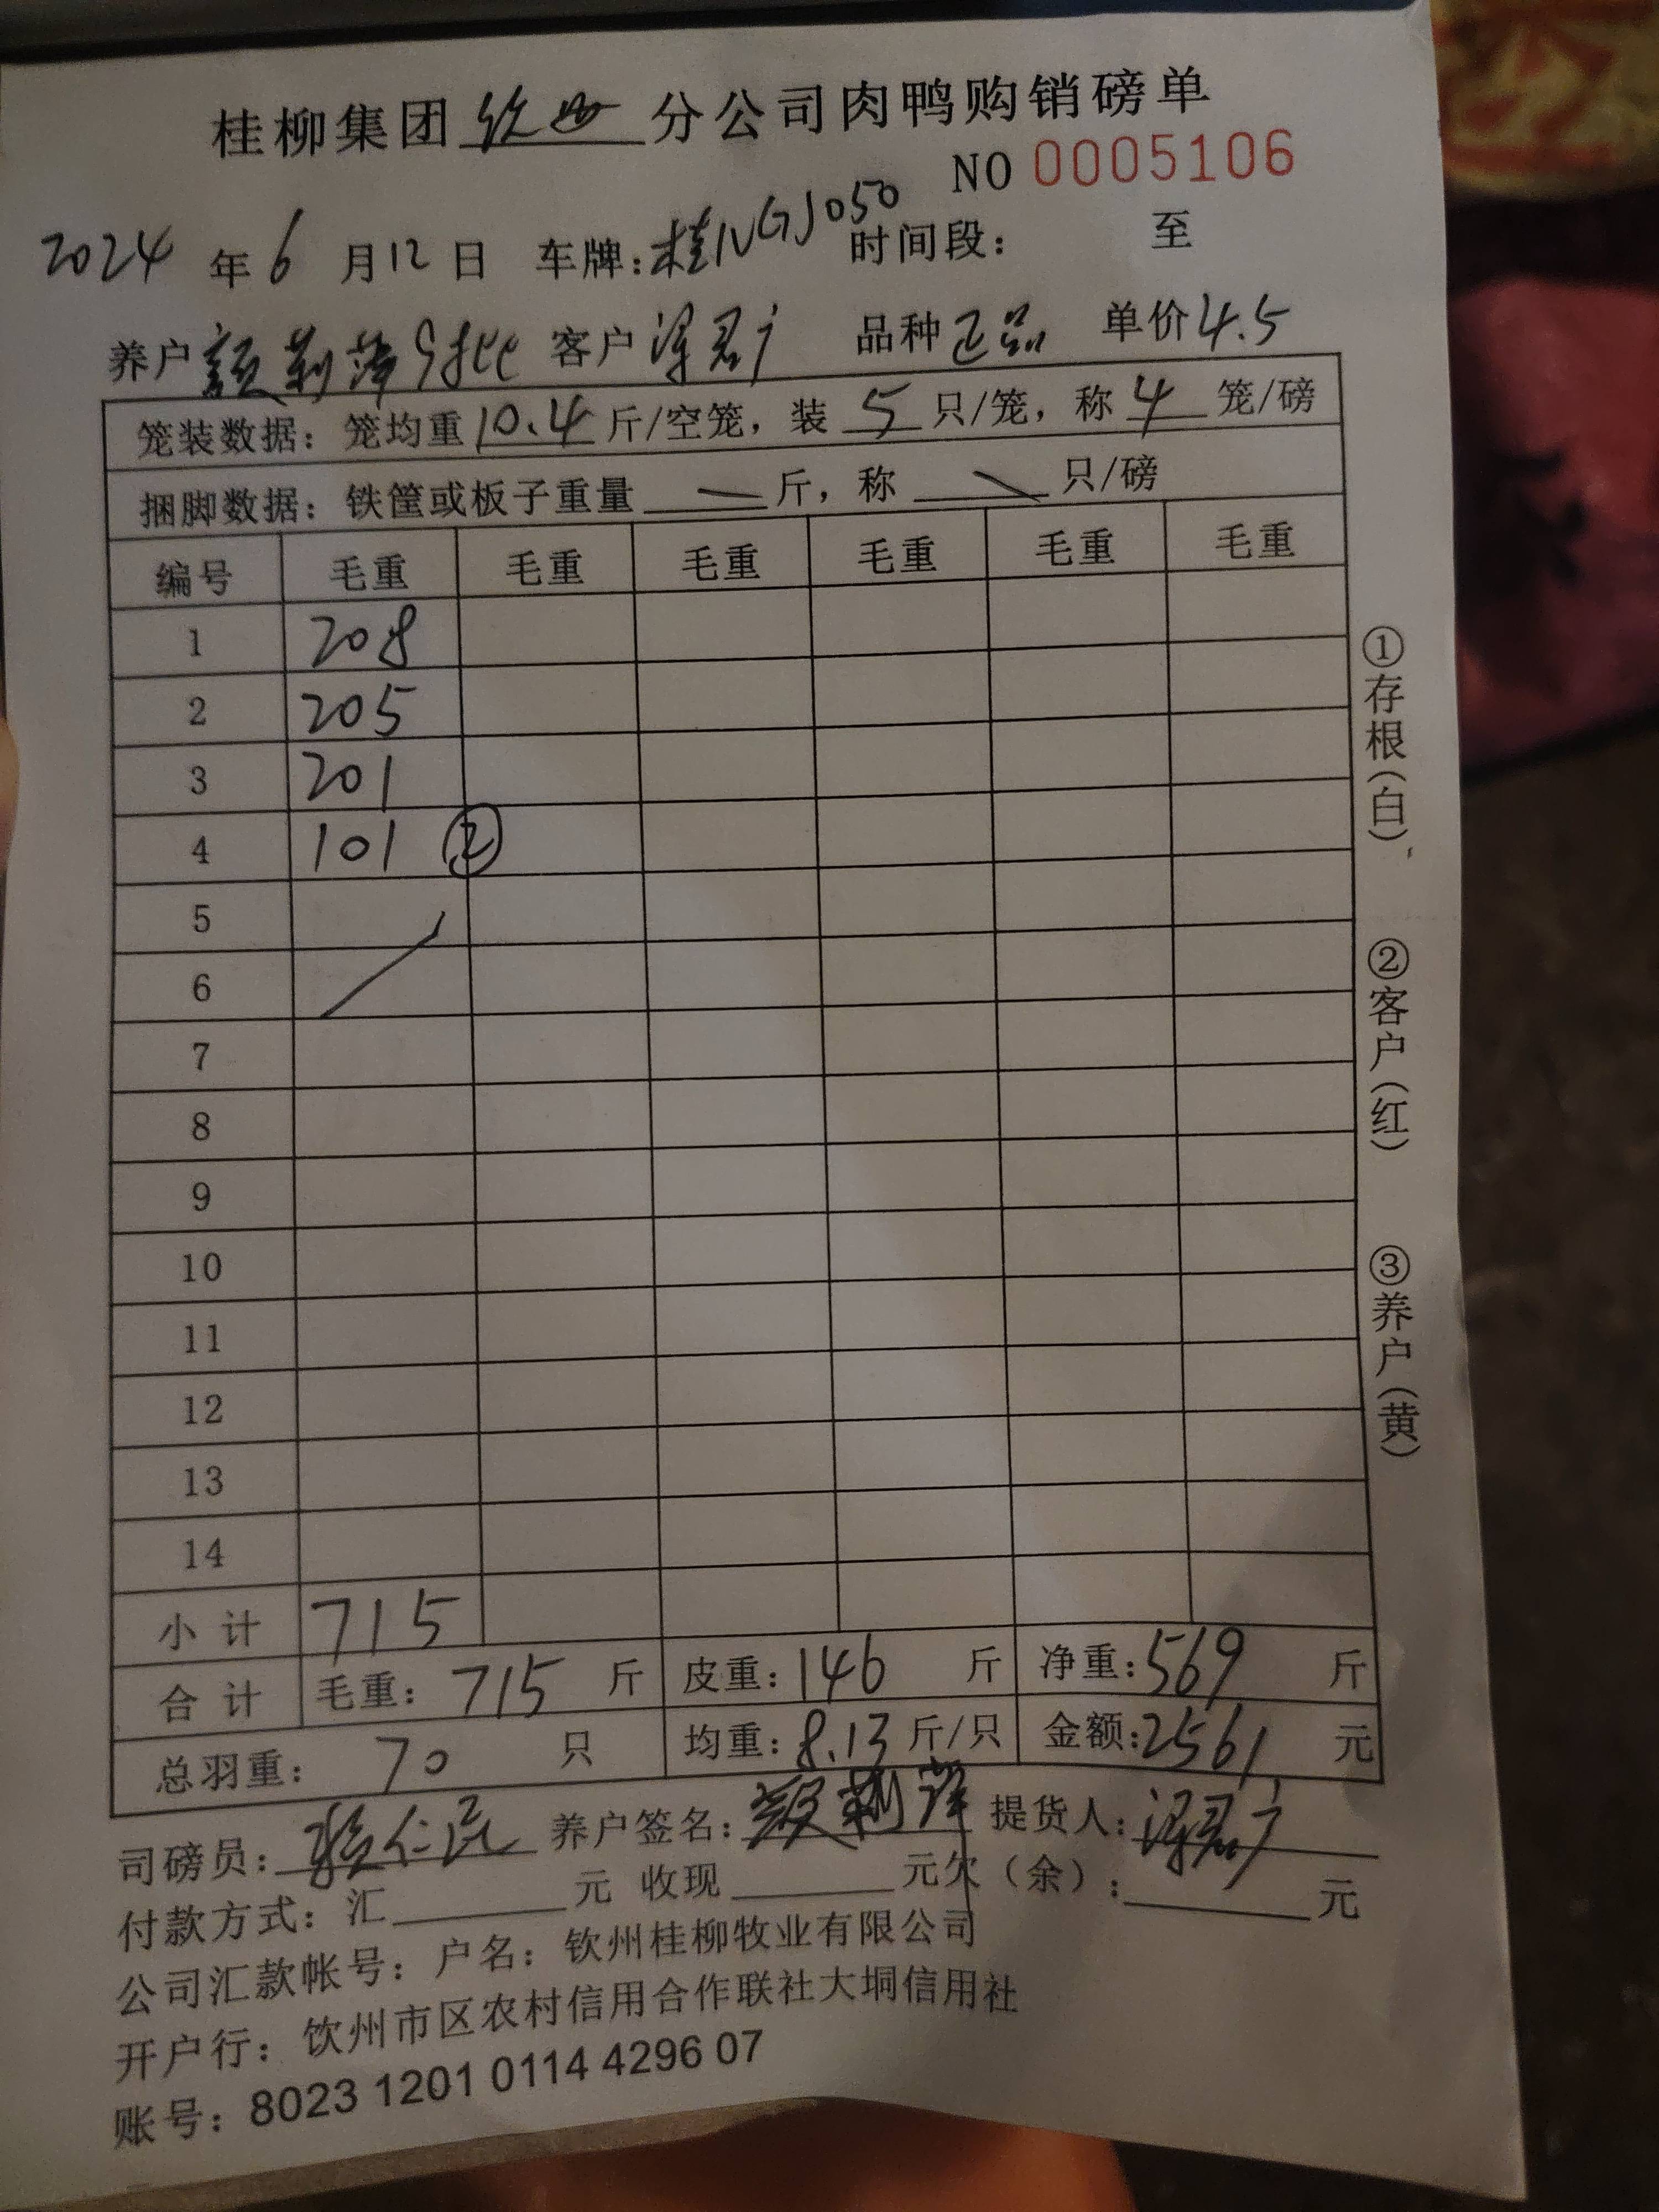 桂柳集团钦西分公司肉鸭购销磅单
NO 0005106
2024 年 6 月 12 日 车牌:桂NGJ050 时间段: 至
养户 颜莉萍 9批 客户 君广 品种 正品 单价 4.5
笼装数据: 笼均重 10.4 斤/空笼, 装 5 只/笼, 称 4 笼/磅
捆脚数据: 铁筐或板子重量 — 斤, 称 — 只/磅
编号 毛重 毛重 毛重 毛重 毛重 毛重
1 208
2 205
3 201
4 101 ②
5
6
7
8
9
10
11
12
13
14
小计 715
合计 毛重: 715 斤 皮重: 146 斤 净重: 569 斤
总羽重: 70 只 均重: 8.13 斤/只 金额: 2561 元
司磅员: 仁民 养户签名: 颜莉萍 提货人: 君广
付款方式: 汇 元 收现 元 欠(余): 元
公司汇款帐号: 户名: 钦州桂柳牧业有限公司
开户行: 钦州市区农村信用合作联社大垌信用社
账号: 8023 1201 0114 4296 07
①存根(白)
②客户(红)
③养户(黄)